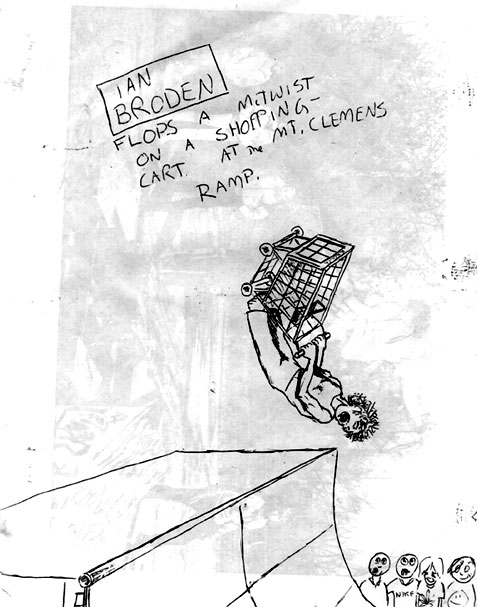 IAN
BRODEN
FLOPS A McTWIST
ON A SHOPPING-
CART. AT the MT. CLEMENS
RAMP.
NIKE